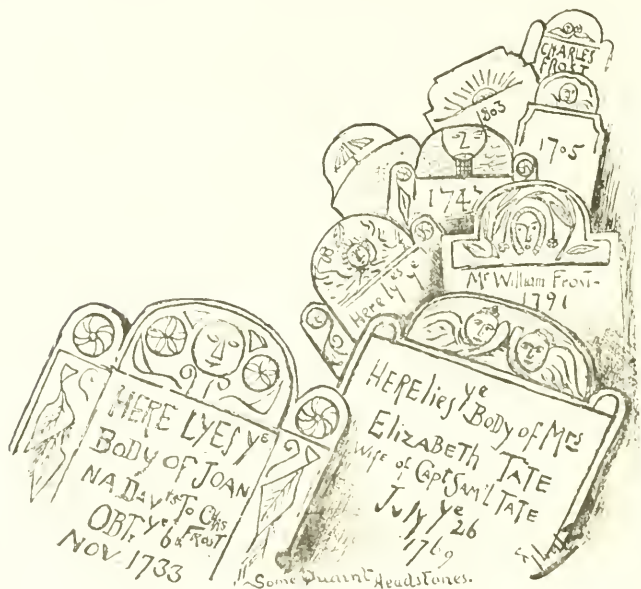 CHARLES
FROST
1803
1705
1747
Here lyes ye
Mr William Frost
1791
HERE LYES ye
BODY OF JOAN
NA DAVrs To Chs
OBT. ye 6 FROST
NOV. 1733
HERE lies ye BODY of Mrs
ELIZABETH TATE
Wife of Capt SAM'L TATE
July ye 26
1769
Some Quaint Headstones.